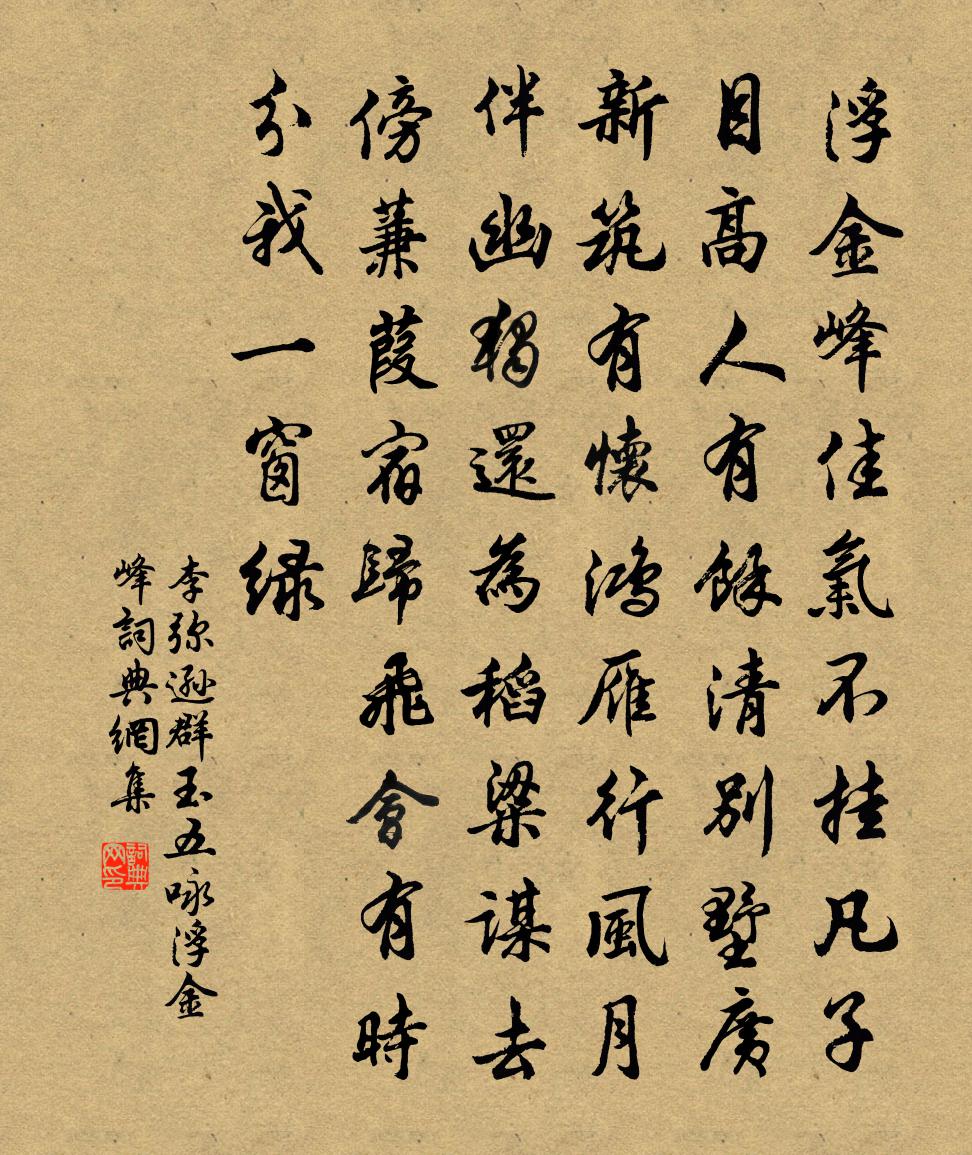 浮金峰佳氣不挂凡子
目高人有餘清別墅廣
新筑有懷鴻雁行風月
伴幽獨還為稻粱謀去
傍蒹葭宿歸飛會有時
分我一窗綠
李弥遜群玉五咏浮金
峰詞典網集
詞典
网印